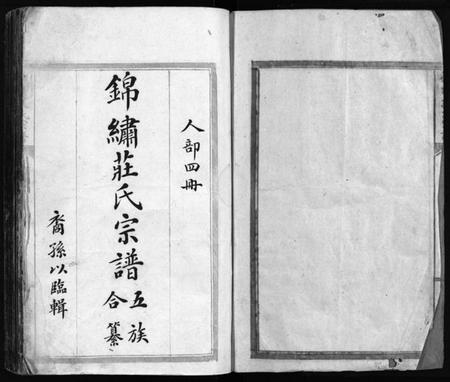 人部四冊
錦繡莊氏宗譜
五族
合纂
裔孫以臨輯